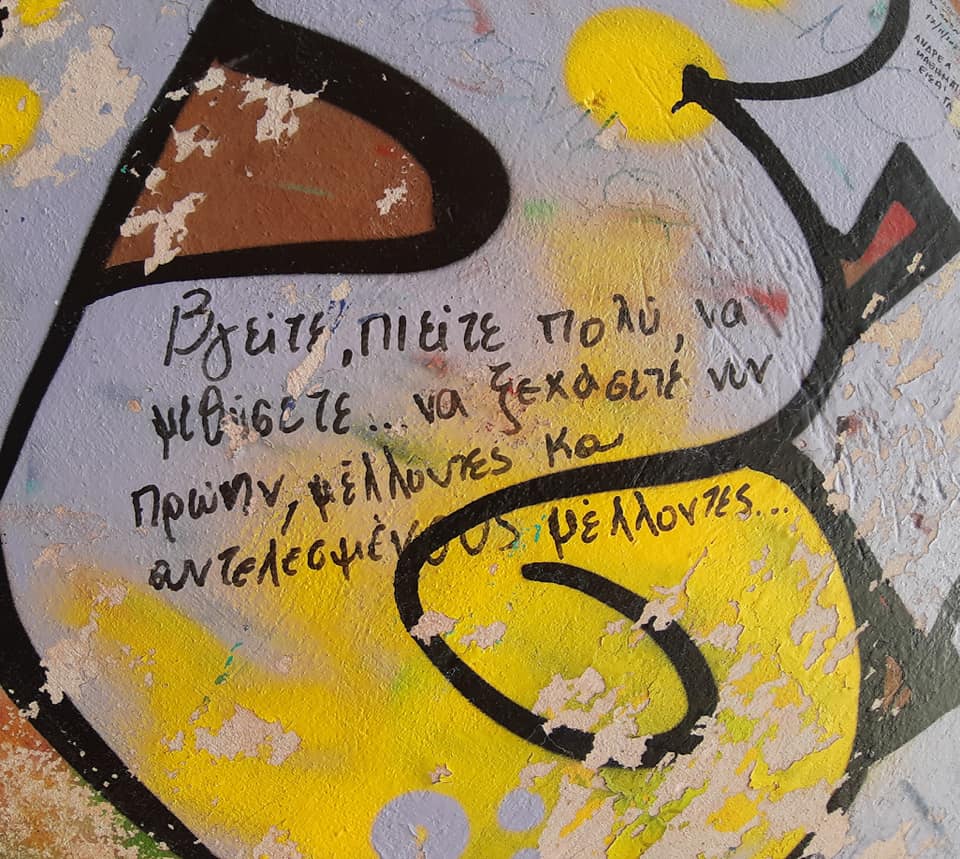 Βγείτε, πιείτε πολύ, να
μεθύσετε... να ξεχάσετε νυν
πρώην, μέλλοντες κα
συντελεσμένους μέλλοντες...
ΑΝΔΡΕΑ
ΕΙΣΑΙ